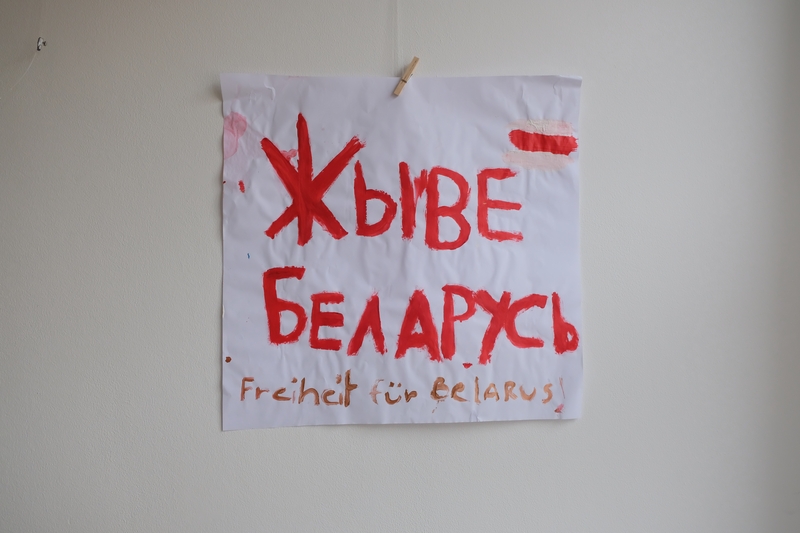 Жыве
Беларусь
Freiheit für BElARUS!